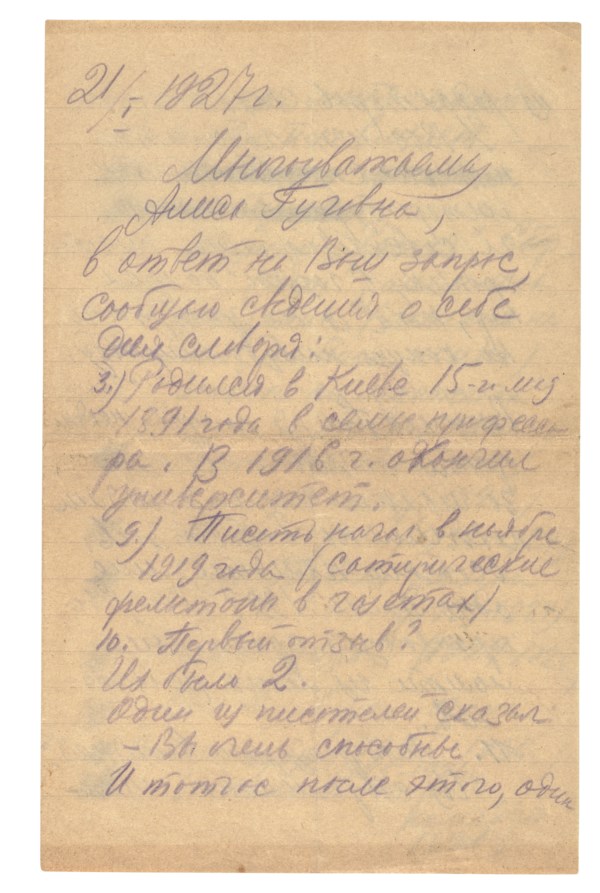 21/I 1927г.
Многоуважаемая
Алиса Гуговна,
в ответ на Ваш запрос,
сообщаю сведения о себе
для словаря:
3.) Родился в Киеве 15-го мая
1891 года в семье профессо-
ра. В 1916 г. окончил
университет.
9.) Писать начал в ноябре
1919 года (сатирические
фельетоны в газетах)
10. Первый отзыв?
Их было 2.
Один из писателей сказал
– Вы очень способны.
И тотчас после этого, один